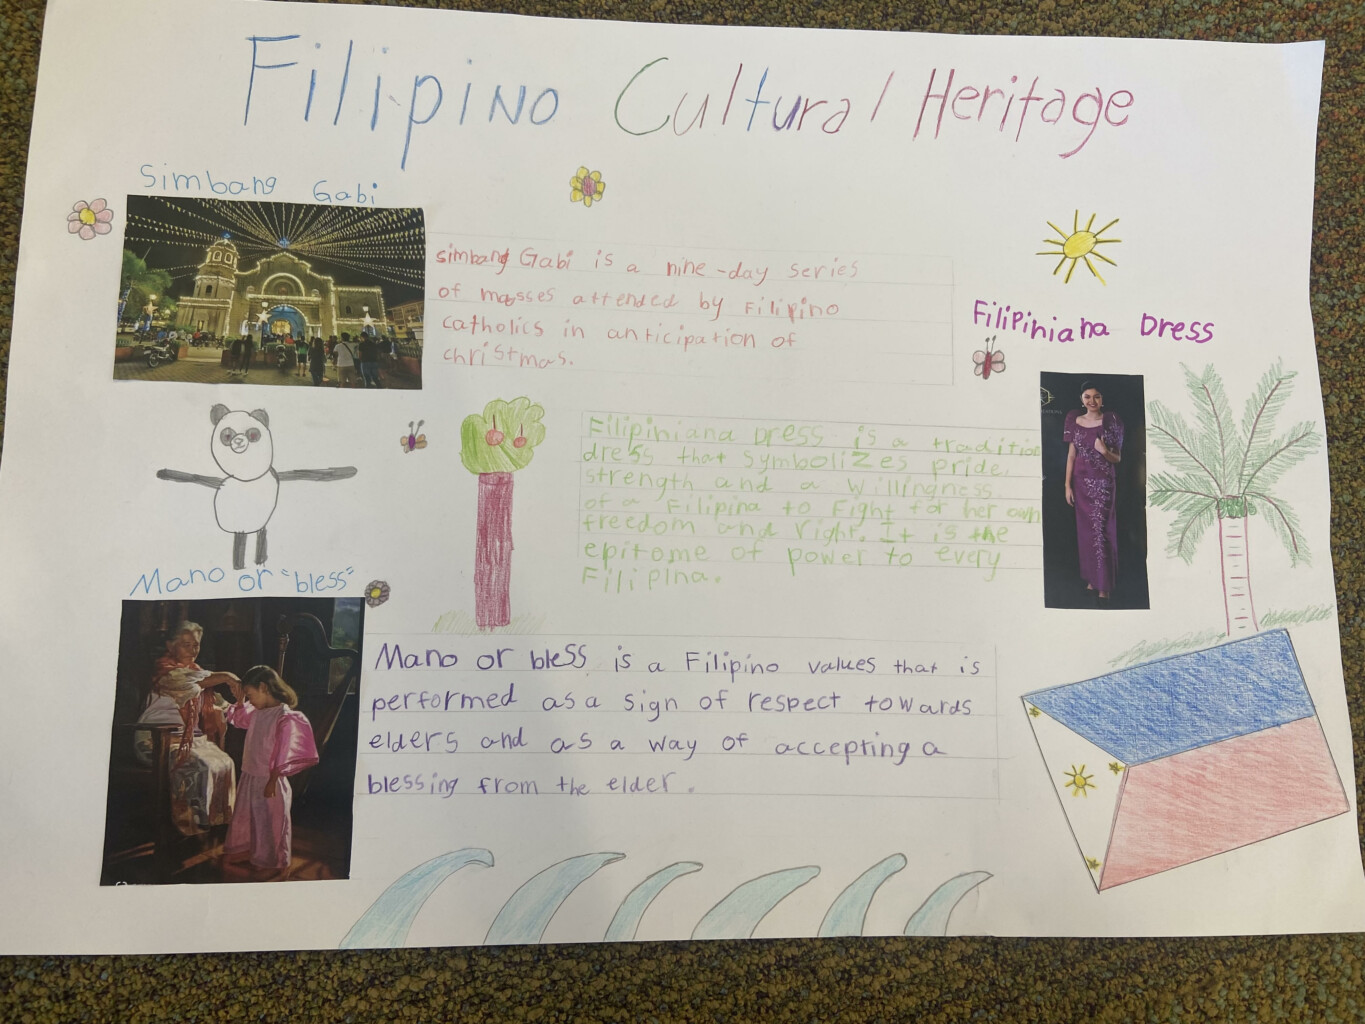 Filipino Cultural Heritage
Simbang Gabi
simbang Gabi is a nine-day series
of masses attended by Filipino
catholics in anticipation of
christmas.
Filipiniana Dress
Filipiniana Dress is a traditio
dress that symbolizes pride,
strength and a willingness
of a Filipina to fight for her own
freedom and right. It is the
epitome of power to every
Filipina.
Mano or "bless"
Mano or bless is a Filipino values that is
performed as a sign of respect towards
elders and as a way of accepting a
blessing from the elder.